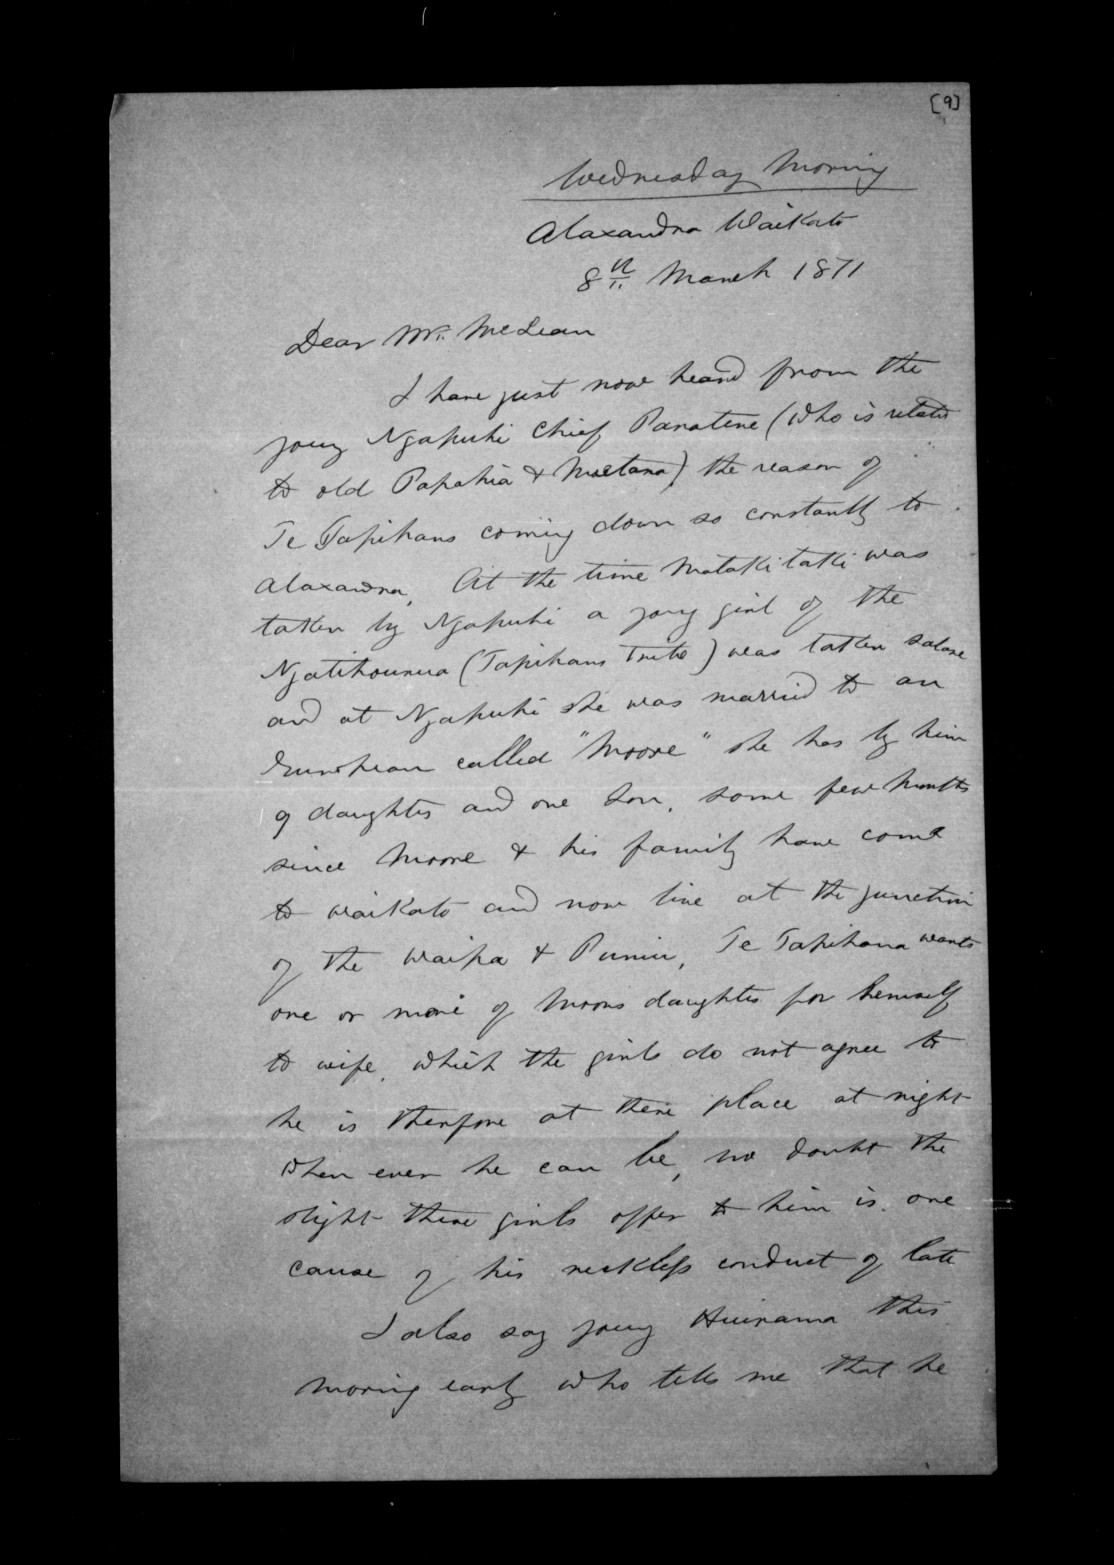 [9]
Wednesday Moring
Alaxandra Waikato
8th March 1871
Dear Mr. McLean
I have just now heard from the
young Ngapuhi Chief Paratene (who is related
to old Papahia & ) the reason of
Te Tapihans coming down so constantly to
Alaxandra, At the time Matakitaki was
taken by Ngapuhi a young girl of the
(Tapihans Tribe) was taken
and at Ngapuhi she was married to an
European called "Moore" she has by him
9 daughters and one Son, some few Months
since Moore & his family have come
to Waikato and now live at the junction
of the Waipa & Puniu, Te Tapihana wants
one or more of Moors daughters for hemself
to wife, which the girls do not agree to
he is therfore at there place at night
when ever he can be, no doubt the
slight these girls offer to him is one
cause of his reckless conduct of late
I also say young Huirama this
Moring early who tells me that he